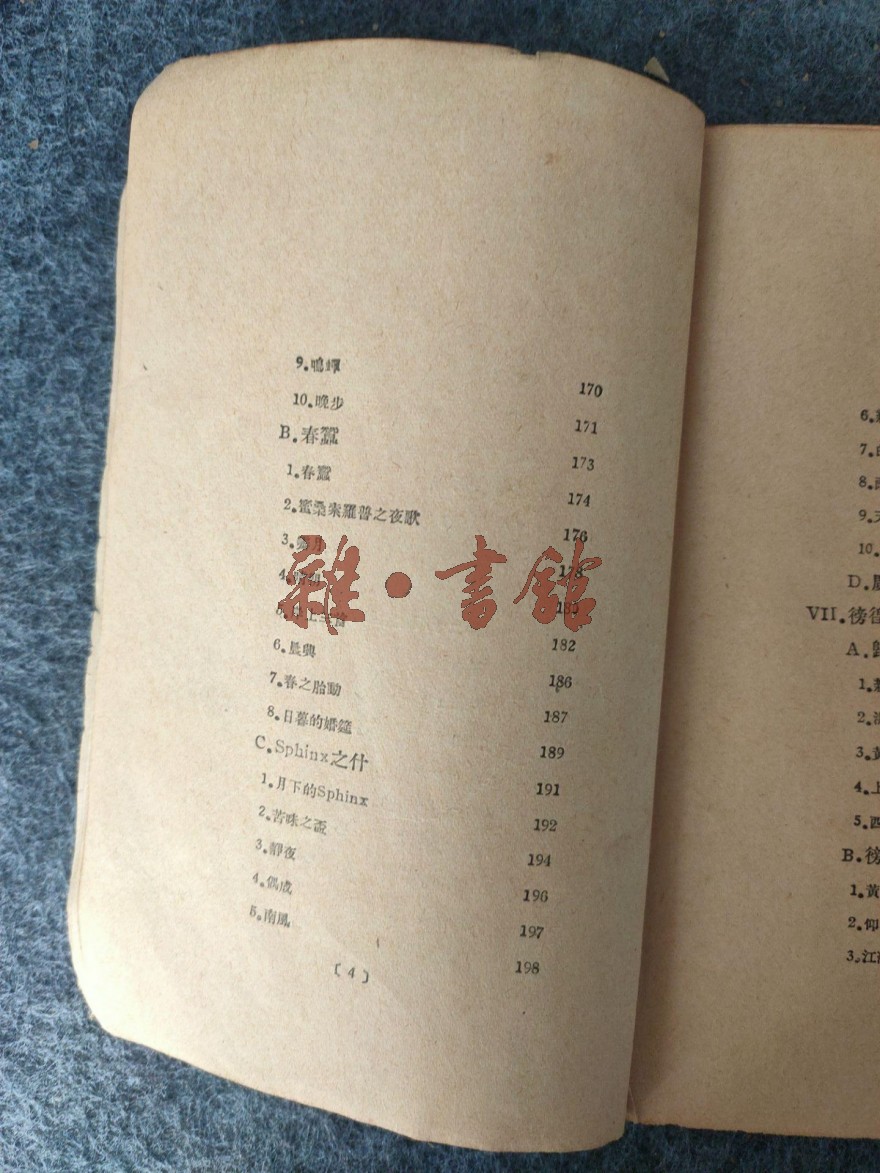 9.鳴蟬 170
10.晚步 171
B.春蠶 173
1.春蠶 174
2.蜜桑索羅普之夜歌 176
3. 月 178
4. 180
5. 上 182
6.晨興 186
7.春之胎動 187
8.日暮的婚筵 189
C.Sphinx之什 191
1.月下的Sphinx 192
2.苦味之盃 194
3.靜夜 196
4.偶成 197
5.南風 198
(4)
雜·書館
6.
7.
8.
9.
10.
D.
VII.徬徨
A.
1.
2.
3.黃
4.上
5.四
B.徬
1.黃
2.仰
3.江